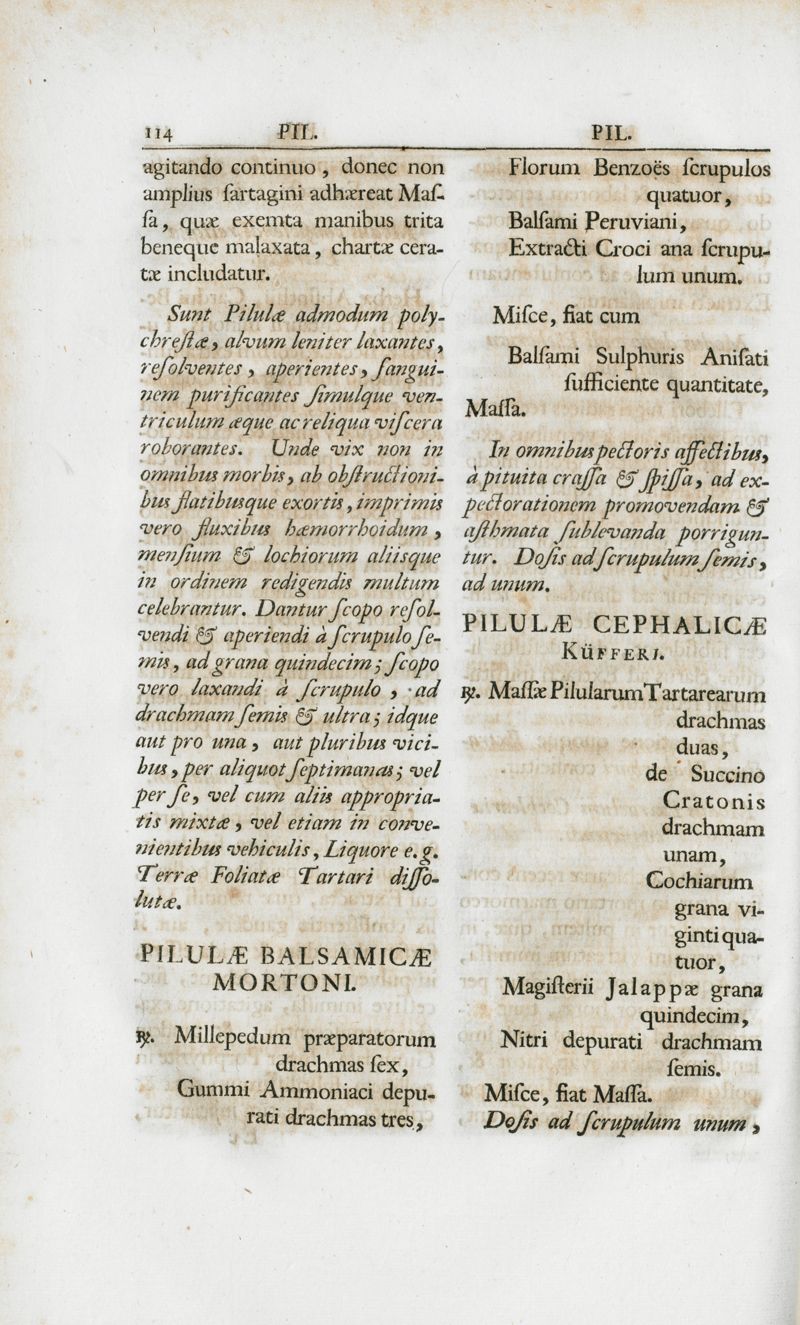 114 PIL. PIL.
agitando continuo, donec non
amplius ſartagini adhæreat Maſ-
ſa, quæ exemta manibus trita
beneque malaxata, chartæ cera-
tæ includatur.
Sunt Pilulæ admodum poly-
chreſtæ, alvum leniter laxantes,
reſolventes, aperientes, ſangui-
nem purificantes ſimulque ven-
triculum æque ac reliqua viſcera
roborantes. Unde vix non in
omnibus morbis, ab obſtructioni-
bus flatibusque exortis, imprimis
vero fluxibus hæmorrhoidum,
menſium & lochiorum aliisque
in ordinem redigendis multum
celebrantur. Dantur ſcopo reſol-
vendi & aperiendi à ſcrupulo ſe-
mis, ad grana quindecim; ſcopo
vero laxandi à ſcrupulo, ad
drachmam ſemis & ultra; idque
aut pro una, aut pluribus vici-
bus, per aliquot ſeptimanas; vel
per ſe, vel cum aliis appropria-
tis mixtæ, vel etiam in conve-
nientibus vehiculis, Liquore e. g.
Terræ Foliatæ Tartari diſſo-
lutæ.
PILULÆ BALSAMICÆ
MORTONI.
℞. Millepedum præparatorum
drachmas ſex,
Gummi Ammoniaci depu-
rati drachmas tres,
Florum Benzoës ſcrupulos
quatuor,
Balſami Peruviani,
Extracti Croci ana ſcrupu-
lum unum.
Miſce, fiat cum
Balſami Sulphuris Aniſati
ſufficiente quantitate,
Maſſa.
In omnibus pectoris affectibus,
à pituita craſſa & ſpiſſa, ad ex-
pectorationem promovendam &
aſthmata ſublevanda porrigun-
tur. Doſis ad ſcrupulum ſemis,
ad unum.
PILULÆ CEPHALICÆ
KÜFFERI.
℞. Maſſæ Pilularum Tartarearum
drachmas
duas,
de Succino
Cratonis
drachmam
unam,
Cochiarum
grana vi-
ginti qua-
tuor,
Magiſterii Jalappæ grana
quindecim,
Nitri depurati drachmam
ſemis.
Miſce, fiat Maſſa.
Doſis ad ſcrupulum unum,